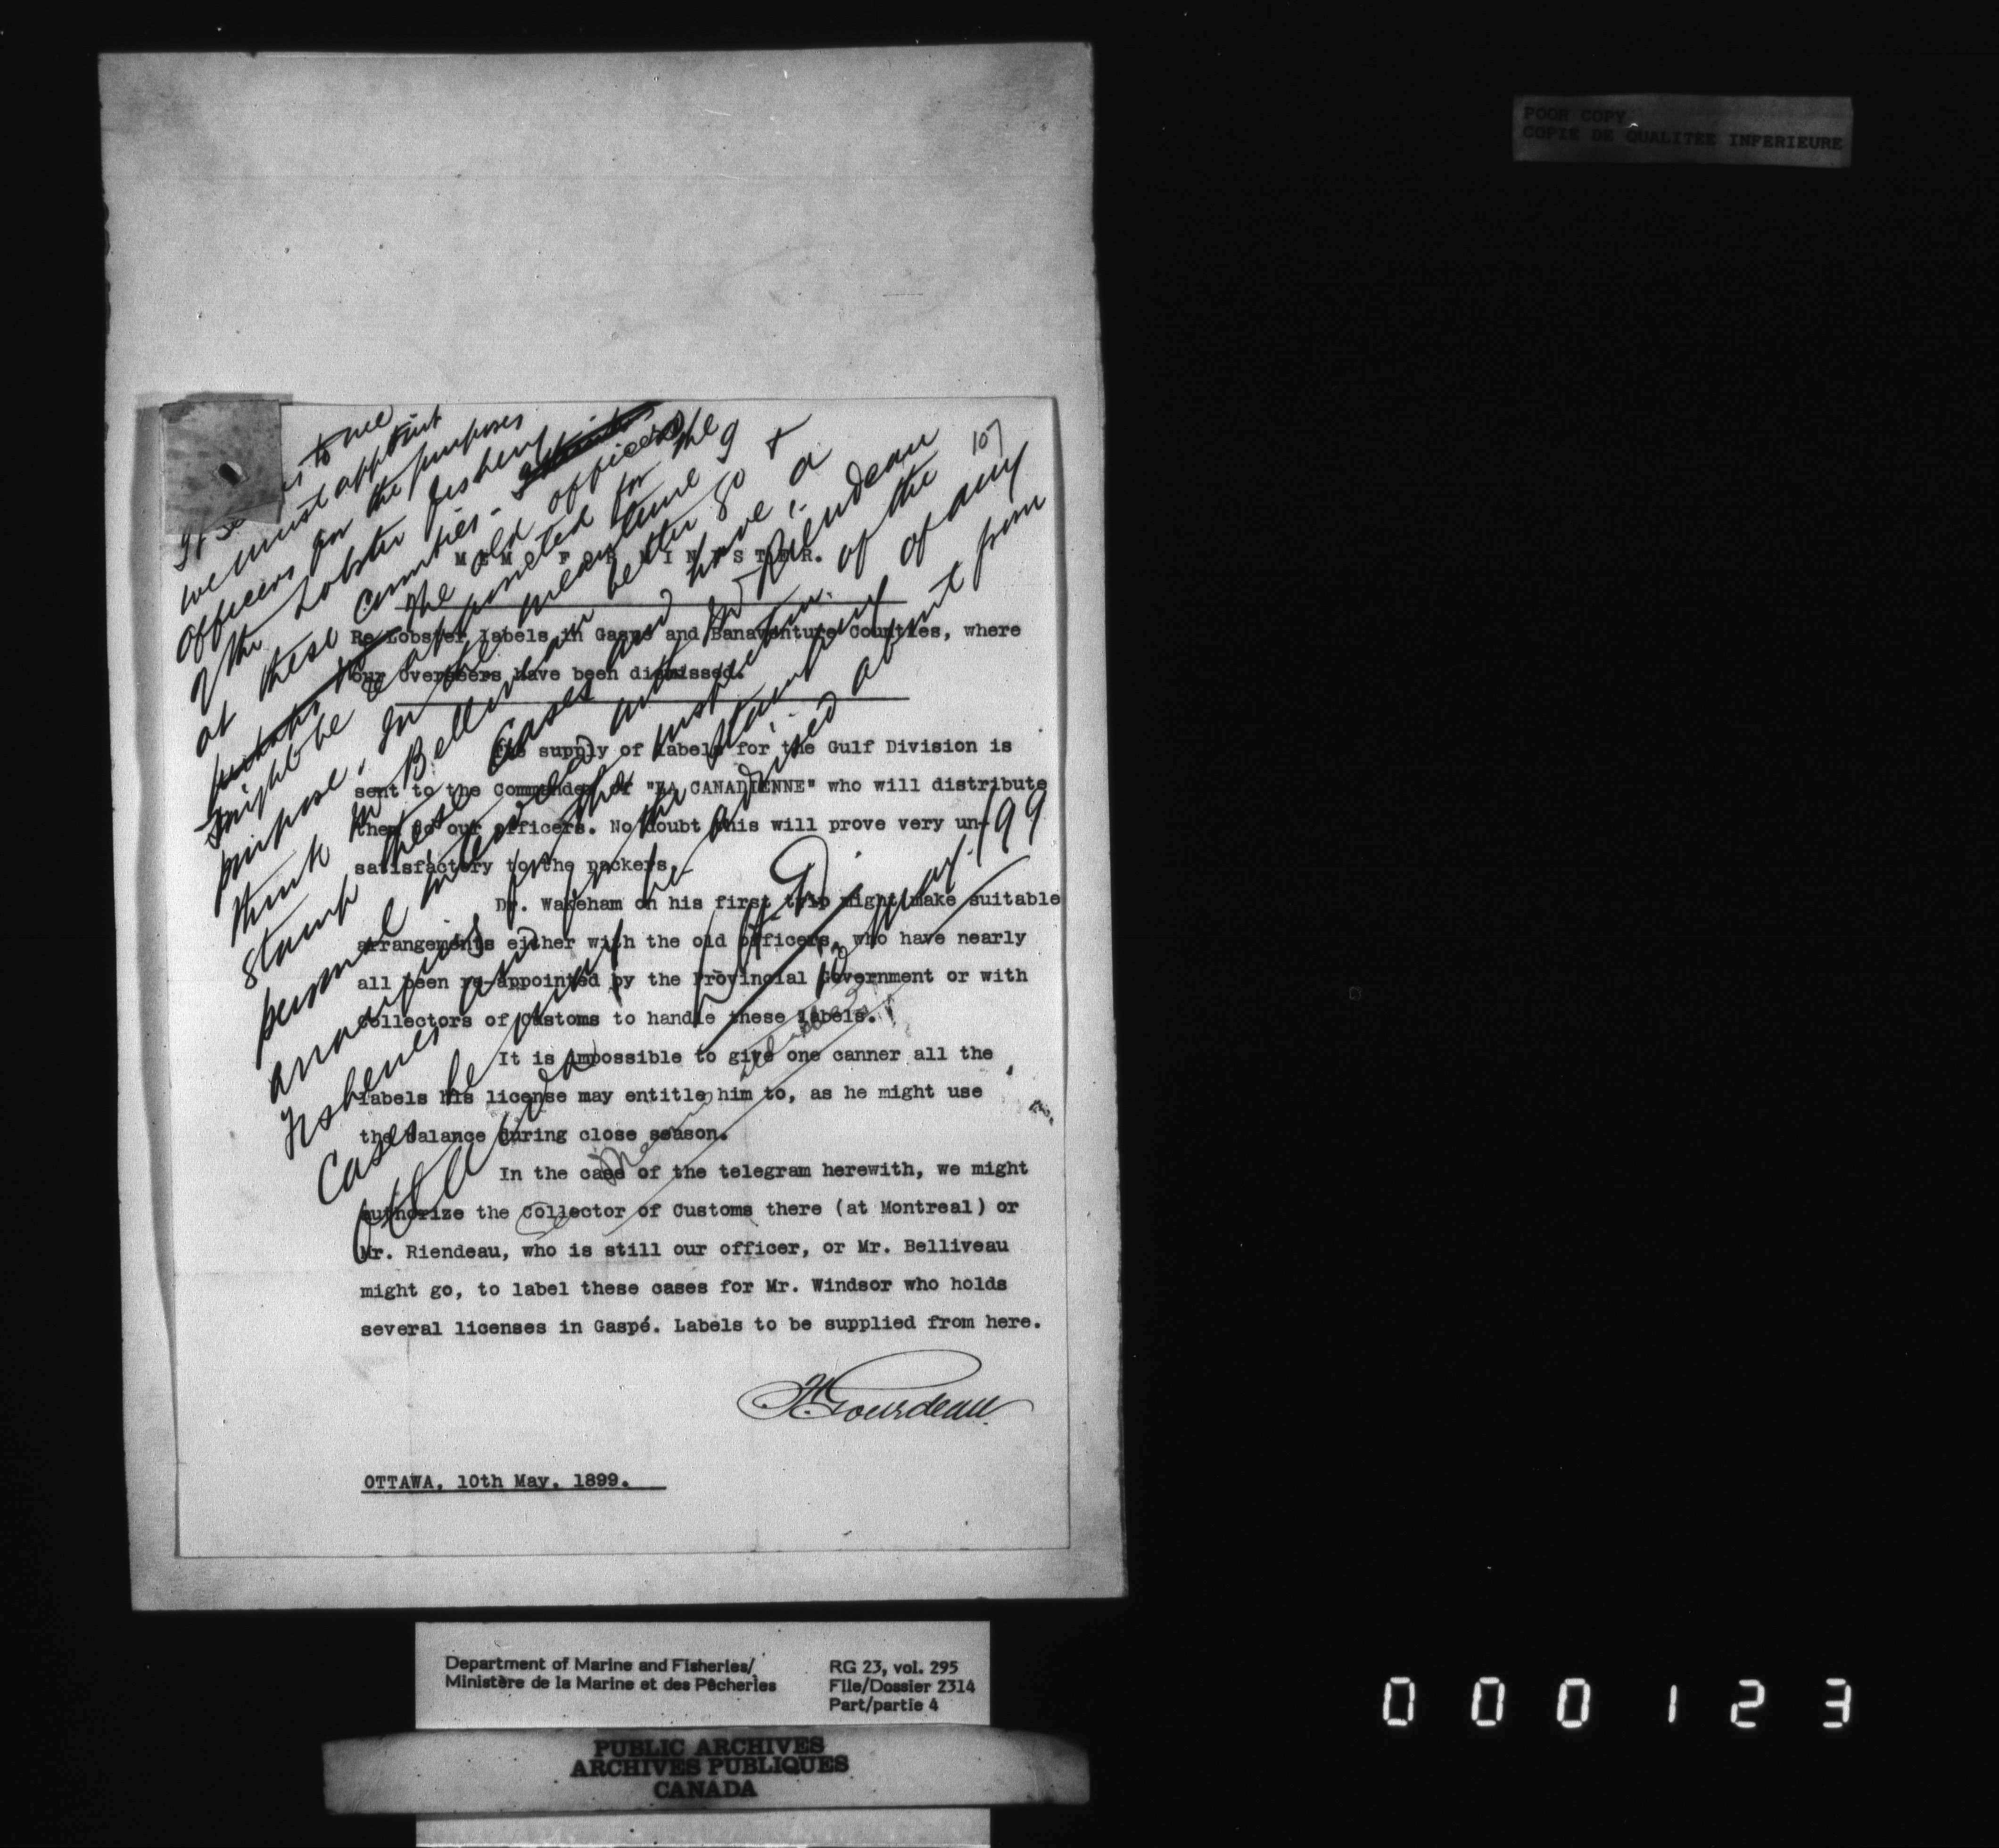 POOR COPY
COPIE DE QUALITEE INFERIEURE
107
MEM FOR MINISTER.
Re Lobster labels in Gaspé and Banaventure Counties, where
our Overseers have been dismissed.
The supply of labels for the Gulf Division is
sent to the Commander of "LA CANADIENNE" who will distribute
them to our officers. No doubt this will prove very un-
satisfactory to the packers.
Dr. Wakeham on his first trip might make suitable
arrangements either with the old officers, who have nearly
all been re-appointed by the Provincial Government or with
Collectors of Customs to handle these labels.
It is impossible to give one canner all the
labels his license may entitle him to, as he might use
the balance during close season.
In the case of the telegram herewith, we might
authorize the Collector of Customs there (at Montreal) or
Mr. Riendeau, who is still our officer, or Mr. Belliveau
might go, to label these cases for Mr. Windsor who holds
several licenses in Gaspé. Labels to be supplied from here.
F Gourdeau
OTTAWA, 10th May, 1899.
to me
we must appoint
officers for the purposes
of the Lobster fishery
at these Counties.
The old officers
might be appointed for the
purpose. In the meantime I
think Mr Belliveau better go &
stamp these Cases and have a
personal interview with Mr Riendeau
and for the inspection of the
fisheries and for the stamping of any
Cases he may be advised about from
Ottawa
LHD
10 May /99
Department of Marine and Fisheries/
Ministère de la Marine et des Pêcheries
RG 23, vol. 295
File/Dossier 2314
Part/partie 4
PUBLIC ARCHIVES
ARCHIVES PUBLIQUES
CANADA
000123